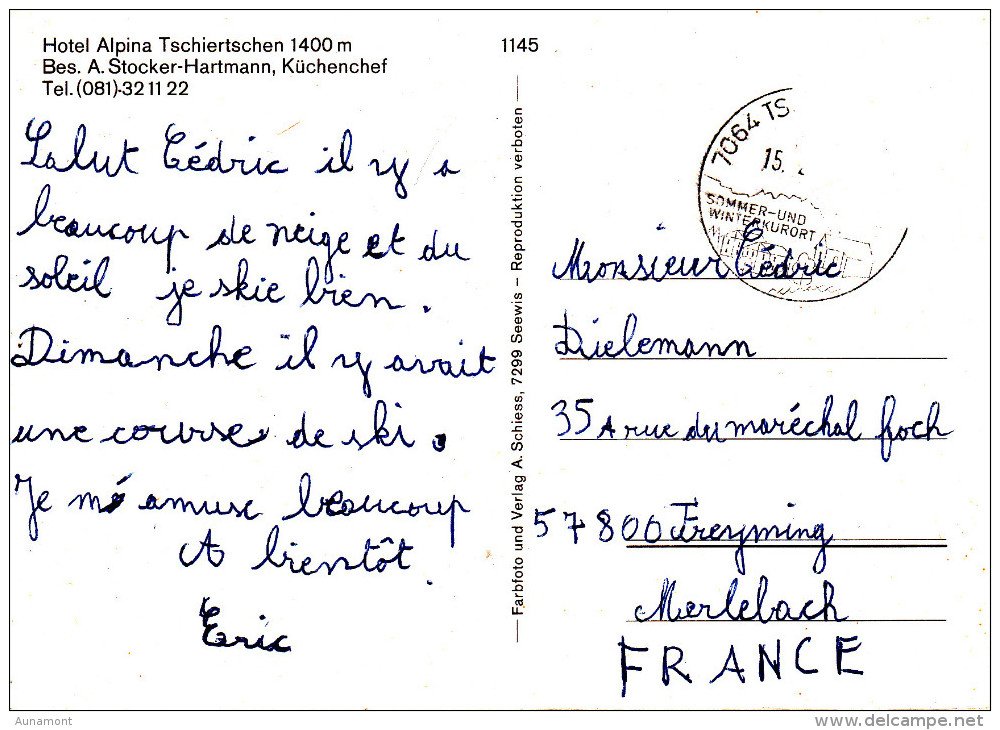 Hotel Alpina Tschiertschen 1400 m
Bes. A. Stocker-Hartmann, Küchenchef
Tel. (081)-32 11 22
Salut Cédric il y a
beaucoup de neige et du
soleil je skie bien.
Dimanche il y avait
une course de ski.
Je m'amuse beaucoup
A bientôt.
Eric
1145
Farbfoto und Verlag A. Schiess, 7299 Seewis – Reproduktion verboten
7064 TS
15.
SOMMER-UND
WINTERKURORT
Monsieur Cédric
Dielemann
35A rue du maréchal foch
57800 Freyming
Merlebach
FRANCE
Aunamont
delcampe.net